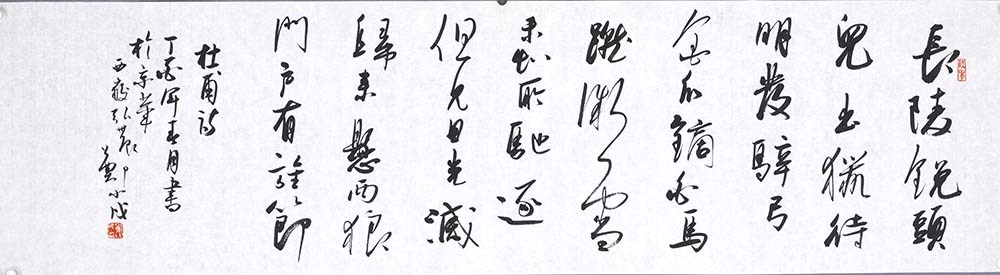 長陵銳頭
兒出猟待
明發騂弓
金爪鏑白馬
蹴微雪
未知所馳逐
但見暮光滅
歸來懸两狼
門户有旌節
杜甫詩
丁年月書
於京華